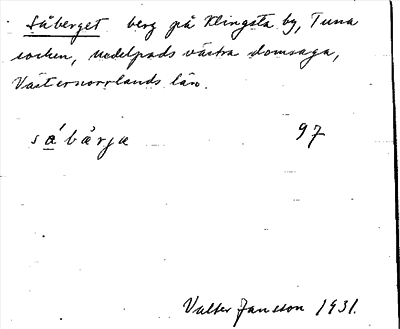 Såberget berg på Klingsta by, Tuna
socken, Medelpads västra domsaga,
Västernorrlands län.
sá̱bärja 97
Valter Jansson 1931.